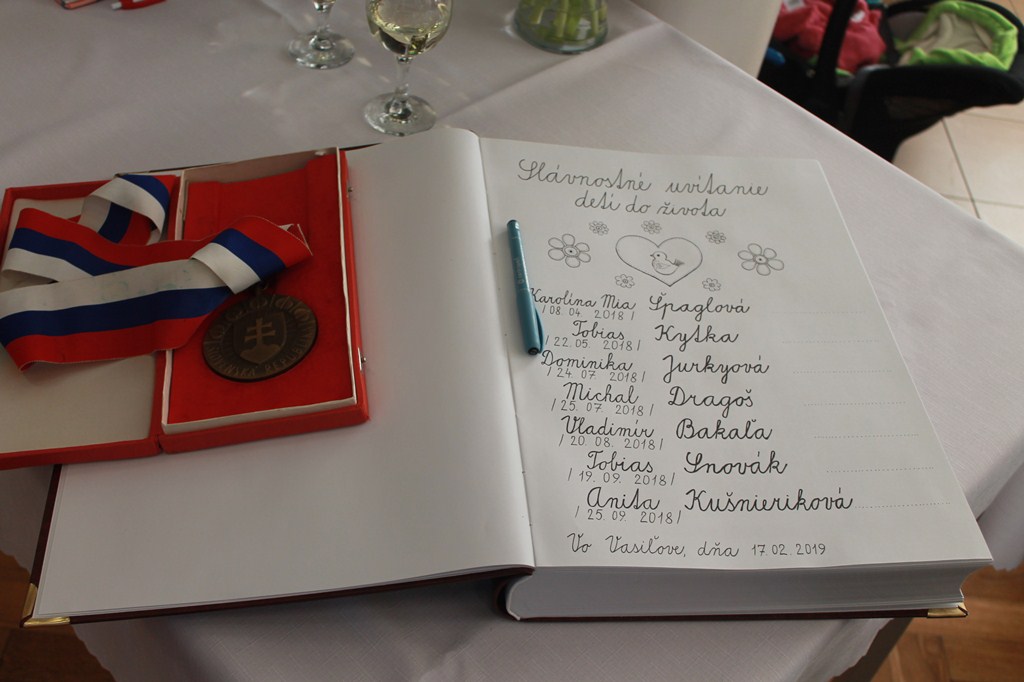 Slávnostné uvítanie
detí do života
Karolína Mia Špaglová
/08. 04. 2018/
Tobias Kytka
/22. 05. 2018/
Dominika Jurkyová
/24. 07. 2018/
Michal Dragoš
/25. 07. 2018/
Vladimír Bakaľa
/20. 08. 2018/
Tobias Snovák
/19. 09. 2018/
Anita Kušnieriková
/25. 09. 2018/
Vo Vasiľove, dňa 17.02.2019